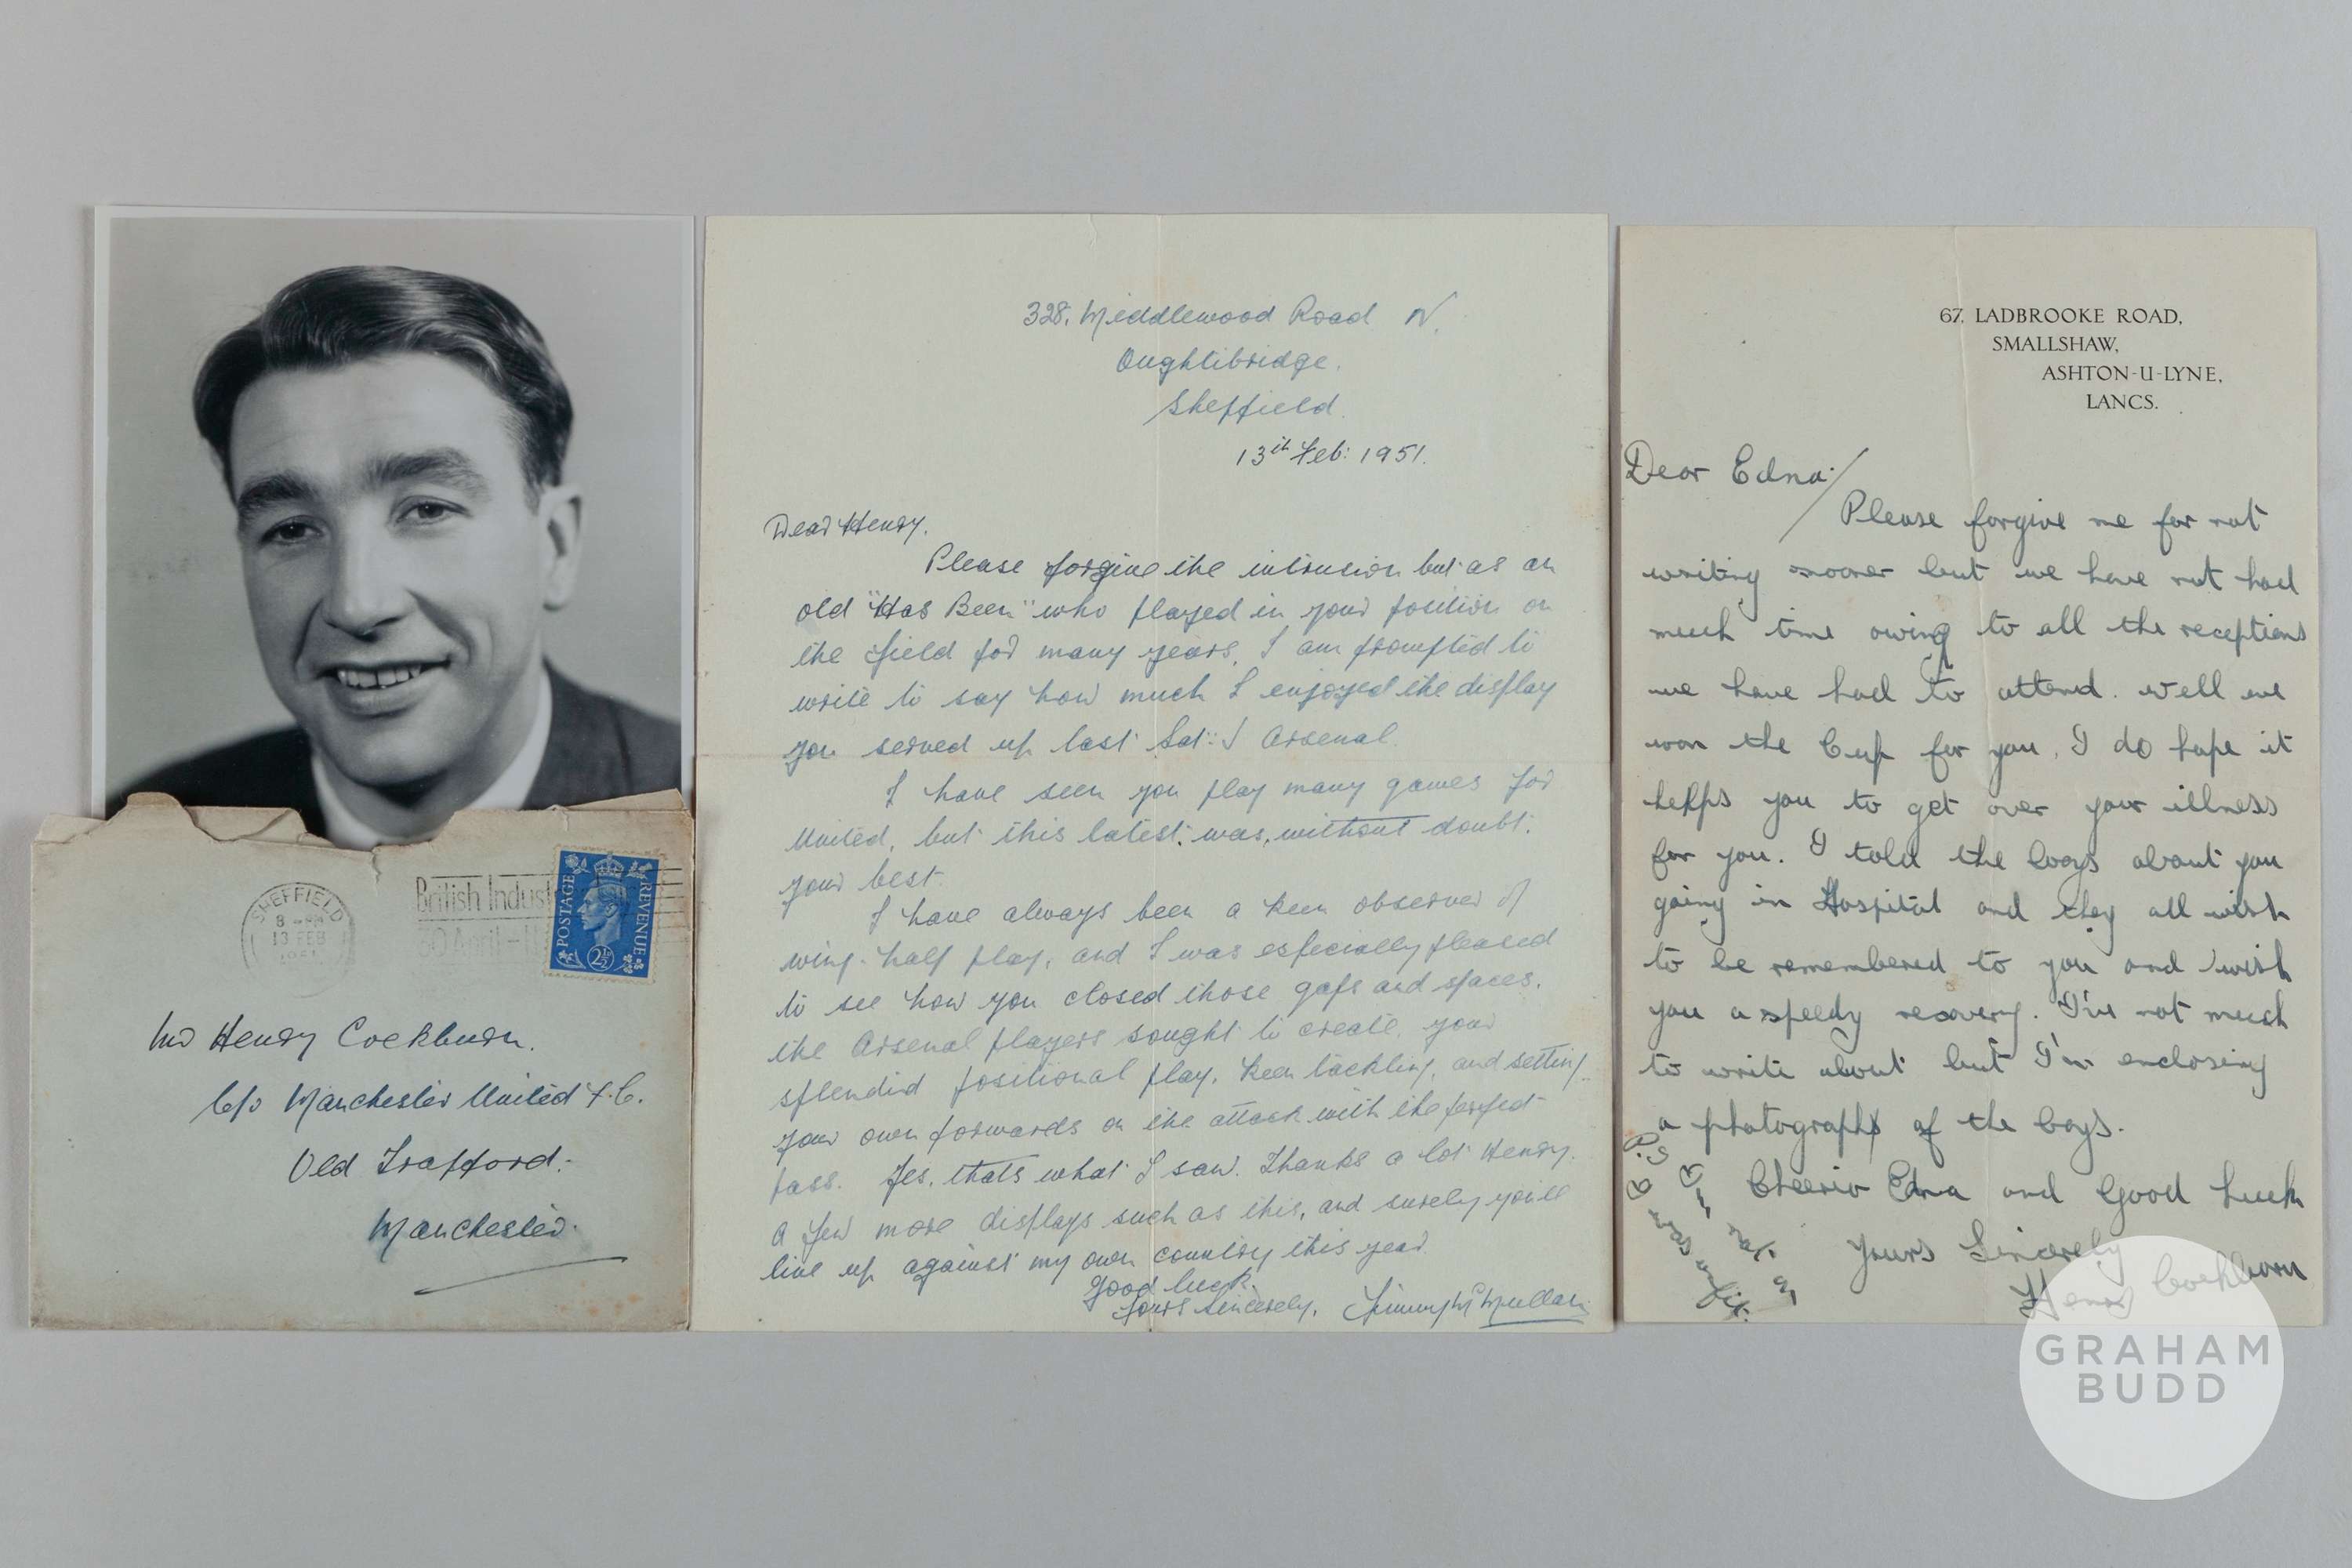 SHEFFIELD
8 - PM
13 FEB
1951
British Indust
30 April - 11
POSTAGE
REVENUE
2½
Mr Henry Cockburn.
C/o Manchester United F.C.
Old Trafford.
Manchester.
328, Middlewood Road N.
Oughtibridge.
Sheffield.
13th Feb: 1951.
Dear Henry.
Please forgive the intrusion but as an
old "Has Been" who played in your position on
the field for many years, I am prompted to
write to say how much I enjoyed the display
you served up last Sat: Arsenal.
I have seen you play many games for
United, but this latest was, without doubt,
your best.
I have always been a keen observer of
wing-half play, and I was especially pleased
to see how you closed those gaps and spaces,
the Arsenal players sought to create, your
splendid positional play, keen tackling, and setting
your own forwards on the attack with the perfect
pass. Yes, thats what I saw. Thanks a lot Henry.
A few more displays such as this, and surely you'll
line up against my own country this year.
Good luck.
Yours Sincerely, Jimmy McMullan
67, LADBROOKE ROAD,
SMALLSHAW,
ASHTON-U-LYNE,
LANCS.
Dear Edna/
Please forgive me for not
writing sooner but we have not had
much time owing to all the receptions
we have had to attend. Well we
won the Cup for you, I do hope it
helps you to get over your illness
for you. I told the boys about you
going in Hospital and they all wish
to be remembered to you and wish
you a speedy recovery. I've not much
to write about but I'm enclosing
a photograph of the boys.
Cheerio Edna and Good Luck
Yours Sincerely
Henry Cockburn
P.S I'm not on
I was unfit.
GRAHAM
BUDD